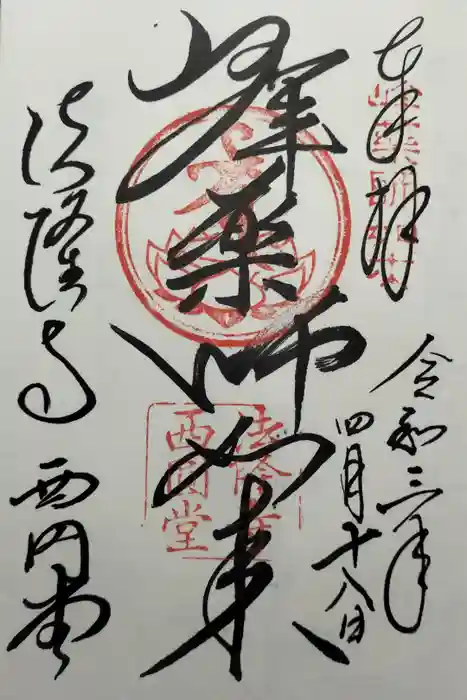 奉拝
令和三年
四月十八日
峯薬師如来
法隆寺
西円堂
峰薬師
法隆寺
西圓堂